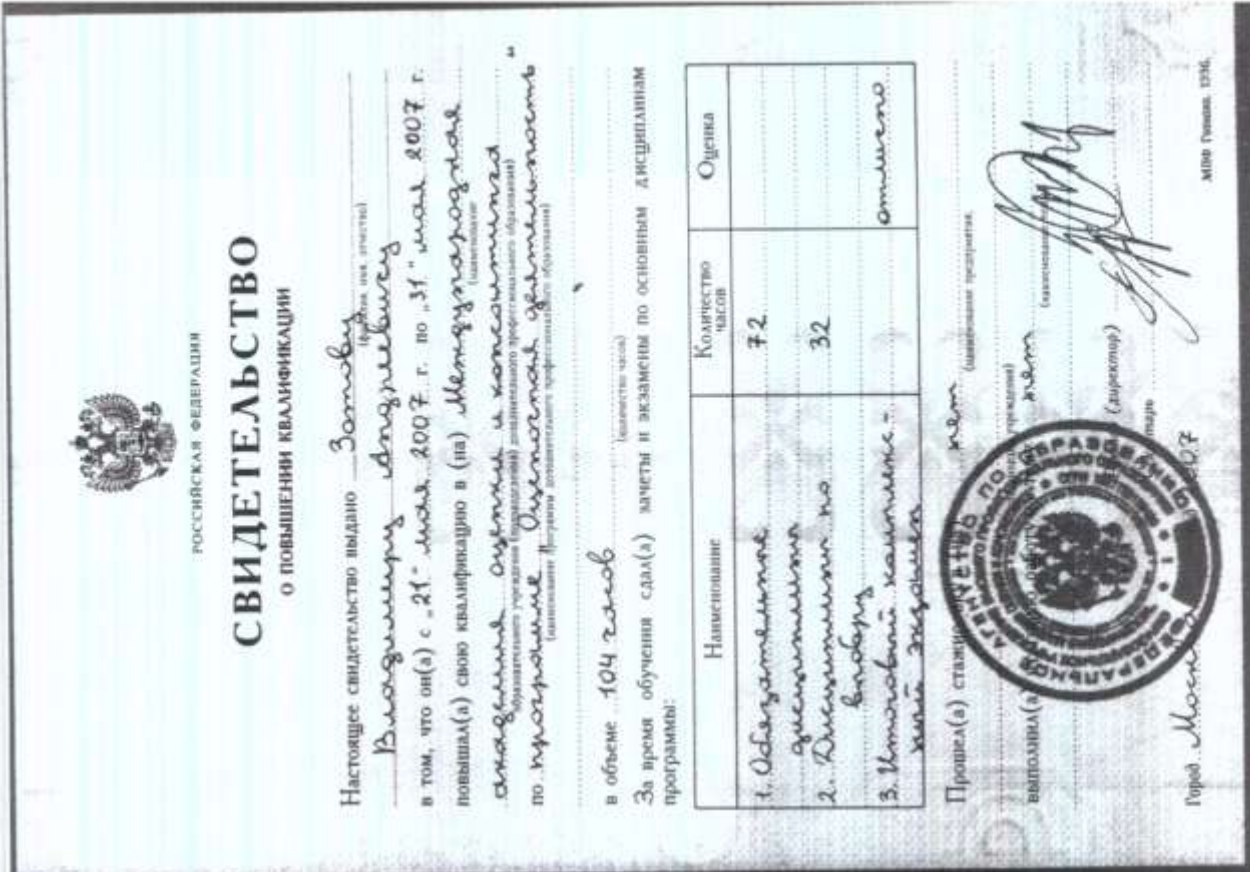 РОССИЙСКАЯ ФЕДЕРАЦИЯ
СВИДЕТЕЛЬСТВО
О ПОВЫШЕНИИ КВАЛИФИКАЦИИ
Настоящее свидетельство выдано Зотову
(фамилия, имя, отчество)
Владимиру Андреевичу
в том, что он(а) с „21" мая 2007 г. по „31" мая 2007 г.
повышал(а) свою квалификацию в (на) Международная
(наименование
академия оценки и консалтинга
образовательного учреждения (подразделения) дополнительного профессионального образования)
по программе "Оценочная деятельность"
(наименование программы дополнительного профессионального образования)
в объеме 104 часов
(количество часов)
За время обучения сдал(а) зачеты и экзамены по основным дисциплинам
программы:
Наименование Количество часов Оценка
1. Обязательные
дисциплины 72
2. Дисциплины по
выбору 32
3. Итоговый комплекс-
ный экзамен отлично
Прошел(а) нет
(наименование предприятия,
учреждения)
выполнил(а) нет
(директор)
ФЕДЕРАЛЬНОЕ АГЕНТСТВО ПО ОБРАЗОВАНИЮ
Город
МПФ Гознака. 1996.